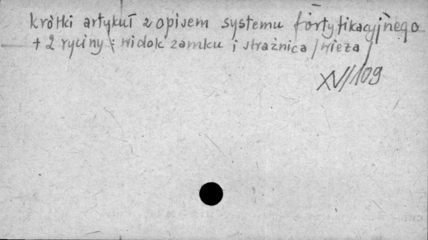 krótki artykuł z opisem systemu fortyfikacyjnego
+ 2 ryciny : widok zamku i strażnica / wieża
XV/109